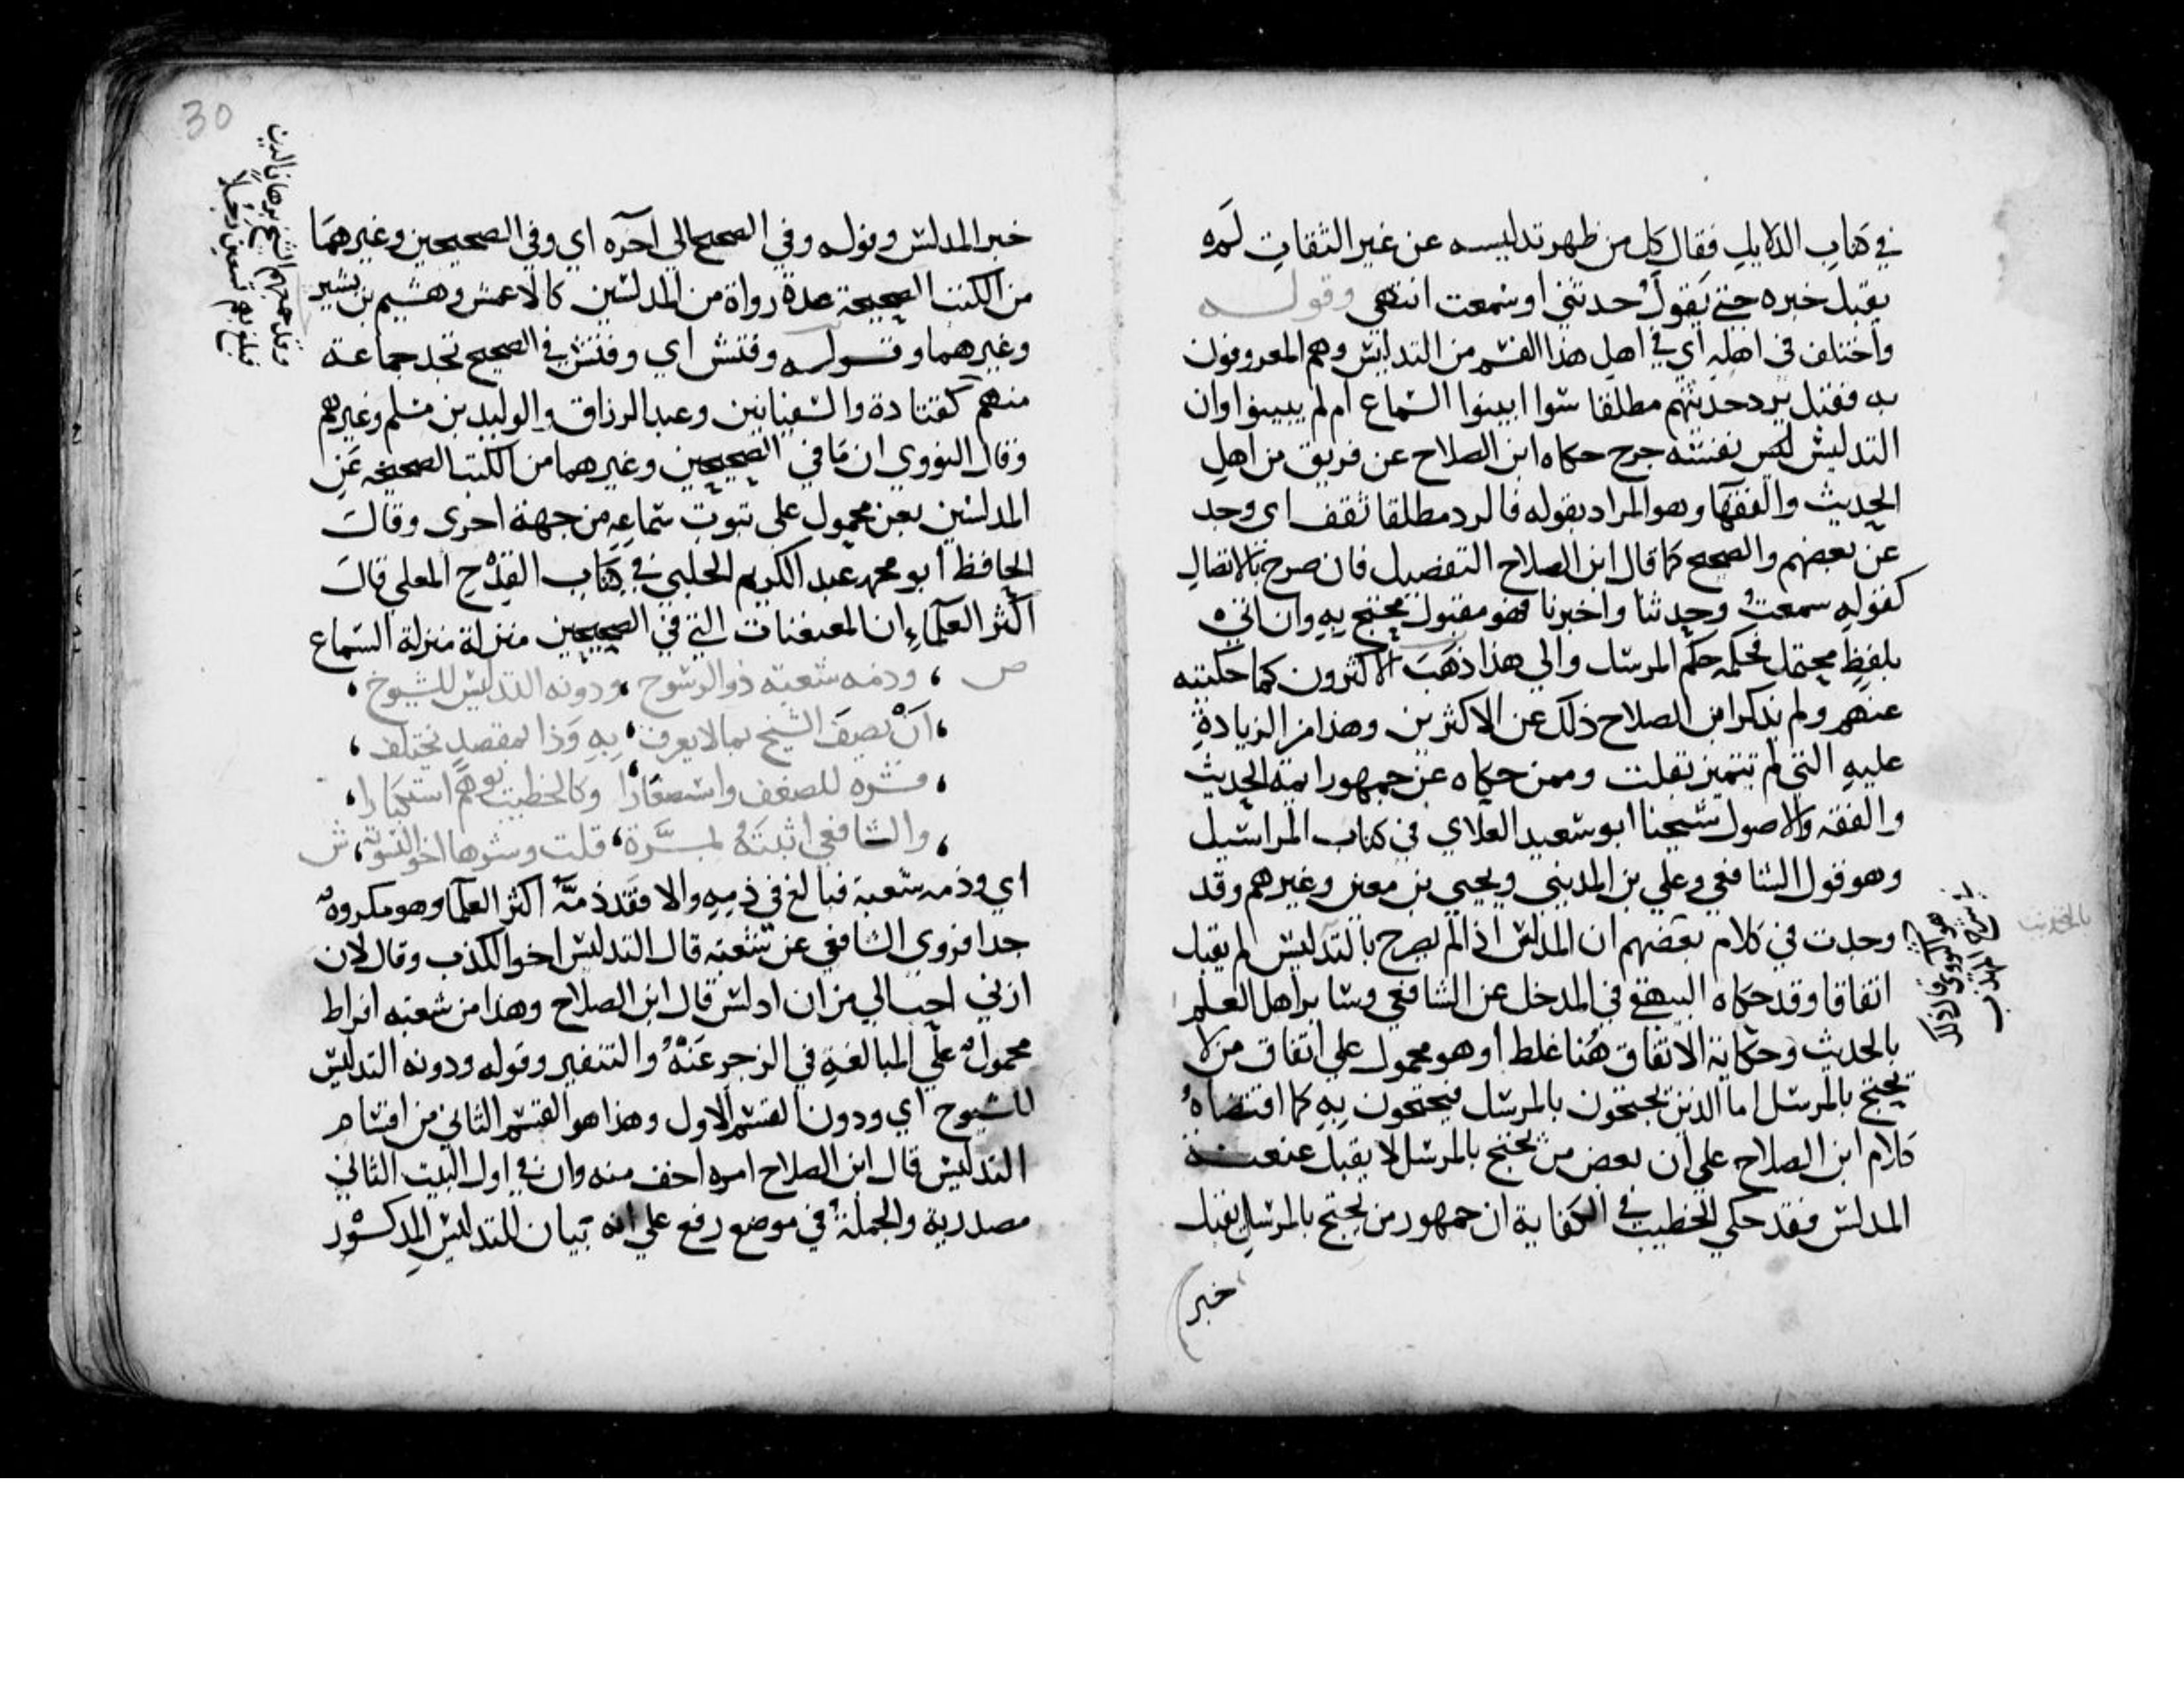 في كتاب الدلايل فقال كل من ظهر تدليسه عن غير الثقات لم
يقبل خبره حتى يقول حدثني او سمعت انتهى وقوله
واختلف في اهله اي في اهل هذا القسم من التدليس وهم المعروفون
به فقيل يرد حديثهم مطلقا سوا ابينوا السماع ام لم يبينوا وان
التدليس نفسه جرح حكاه ابن الصلاح عن فريق من اهل
الحديث والفقها وهو المراد بقوله فالرد مطلقا ثقف اى وجد
عن بعضهم والصحيح كما قال ابن الصلاح التفصيل فان صرح بالاتصال
كقوله سمعت وحدثنا واخبرنا فهو مقبول محتج به وان اتى
بلفظ محتمل فحكمه حكم المرسل والي هذا ذهب الاكثرون كما حكيته
عنهم ولم يذكر ابن الصلاح ذلك عن الاكثرين وهذا من الزيادة
عليه التي لم تتميز بقلت وممن حكاه عن جمهور ايمة الحديث
والفقه والاصول شيخنا ابو سعيد العلاي في كتاب المراسيل
وهو قول الشافعي وعلي بن المديني ويحيي بن معين وغيرهم وقد
وجدت في كلام بعضهم ان المدلس اذا لم يصرح بالتدليس لم يقبل
اتفاقا وقد حكاه البيهقي في المدخل عن الشافعي وساير اهل العلم
بالحديث وحكاية الاتفاق هنا غلط او هو محمول علي اتفاق من لا
يحتج بالمرسل اما الذين يحتجون بالمرسل فيحتجون به كما اقتضاه
كلام ابن الصلاح علي ان بعض من يحتج بالمرسل لا يقبل عنعنة
المدلس فقد حكي الخطيب في الكفاية ان جمهور من يحتج بالمرسل يقبل
خبر
هو النووي قال ذلك
في شرح المهذب
بالتحديث
خبر المدلس وقوله وفي الصحيح الي آخره اي وفي الصحيحين وغيرهما
من الكتب الصحيحة عدة رواة من المدلسين كالاعمش وهشيم بن بشير
وغيرهما وقوله وفتش اي وفتش في الصحيح تجد جماعة
منهم كقتادة والسفيانين وعبد الرزاق والوليد بن مسلم وغيرهم
وقال النووي ان ما في الصحيحين وغيرهما من الكتب الصحيحه عن
المدلسين بعن محمول على ثبوت سماعه من جهة اخرى وقال
الحافظ أبو محمد عبد الكريم الحلبي في كتاب القدح المعلي قال
اكثر العلماء ان المعنعنات التي في الصحيحين منزلة منزلة السماع
ص ، وذمه شعبة ذو الرسوخ ، ودونه التدليس للشيوخ ،
، أن يصف الشيخ بما لا يعرف ، به وذا بمقصد يختلف ،
، فشره للضعف واستصغارا ، وكالخطيب يوهم استكثارا ،
، والشافعي اثبته لمرة ، قلت وشرها اخو التسوية ، ش
اي وذمه شعبة فبالغ في ذمه والا فقد ذمه اكثر العلما وهو مكروه
جدا فروى الشافعي عن شعبة قال التدليس اخو الكذب وقال لان
ازني احب الي من ان ادلس قال ابن الصلاح وهذا من شعبه افراط
محمول علي المبالغة في الزجر عنه والتنفير وقوله ودونه التدليس
للشيوخ اي ودون القسم الاول وهذا هو القسم الثاني من اقسام
التدليس قال ابن الصلاح امره اخف منه وان في اول البيت الثاني
مصدرية والجملة في موضع رفع علي انه بيان للتدليس المذكور
وقد جمعهم الشيخ برهان الدين
فبلغ بهم تسعين رجلا
30